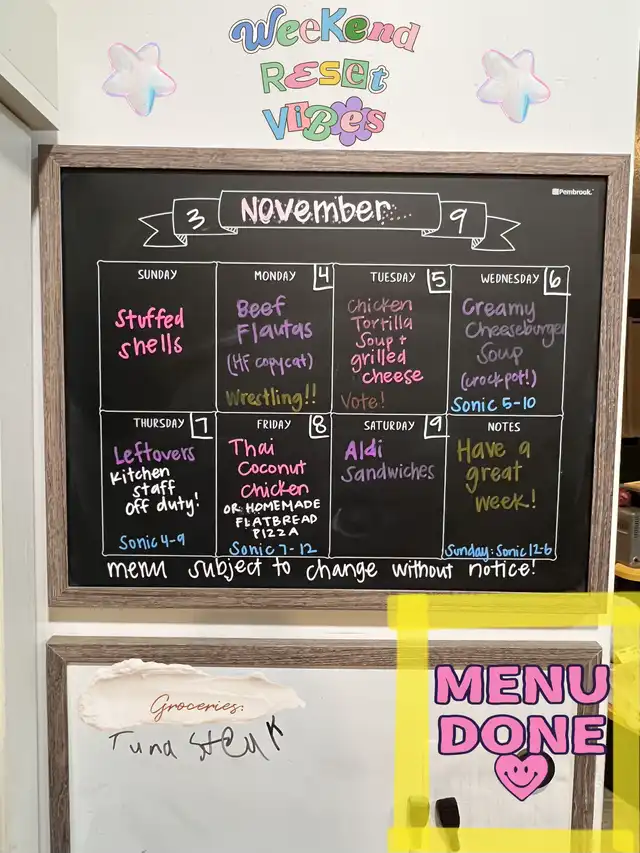 WeeKend
RESEt
ViBes
Pembrook.
3 November 9
SUNDAY
Stuffed
shells
MONDAY 4
Beef
Flautas
(HF copycat)
Wrestling!!
TUESDAY 5
Chicken
Tortilla
Soup +
grilled
cheese
Vote!
WEDNESDAY 6
Creamy
Cheeseburger
Soup
(crockpot!)
Sonic 5-10
THURSDAY 7
Leftovers
Kitchen
staff
off duty!
Sonic 4-9
FRIDAY 8
Thai
Coconut
Chicken
OR HOMEMADE
FLATBREAD
PIZZA
Sonic 7-12
SATURDAY 9
Aldi
Sandwiches
NOTES
Have a
great
week!
Sunday: Sonic 12-6
menu subject to change without notice!
Groceries:
Tuna Steak
MENU
DONE